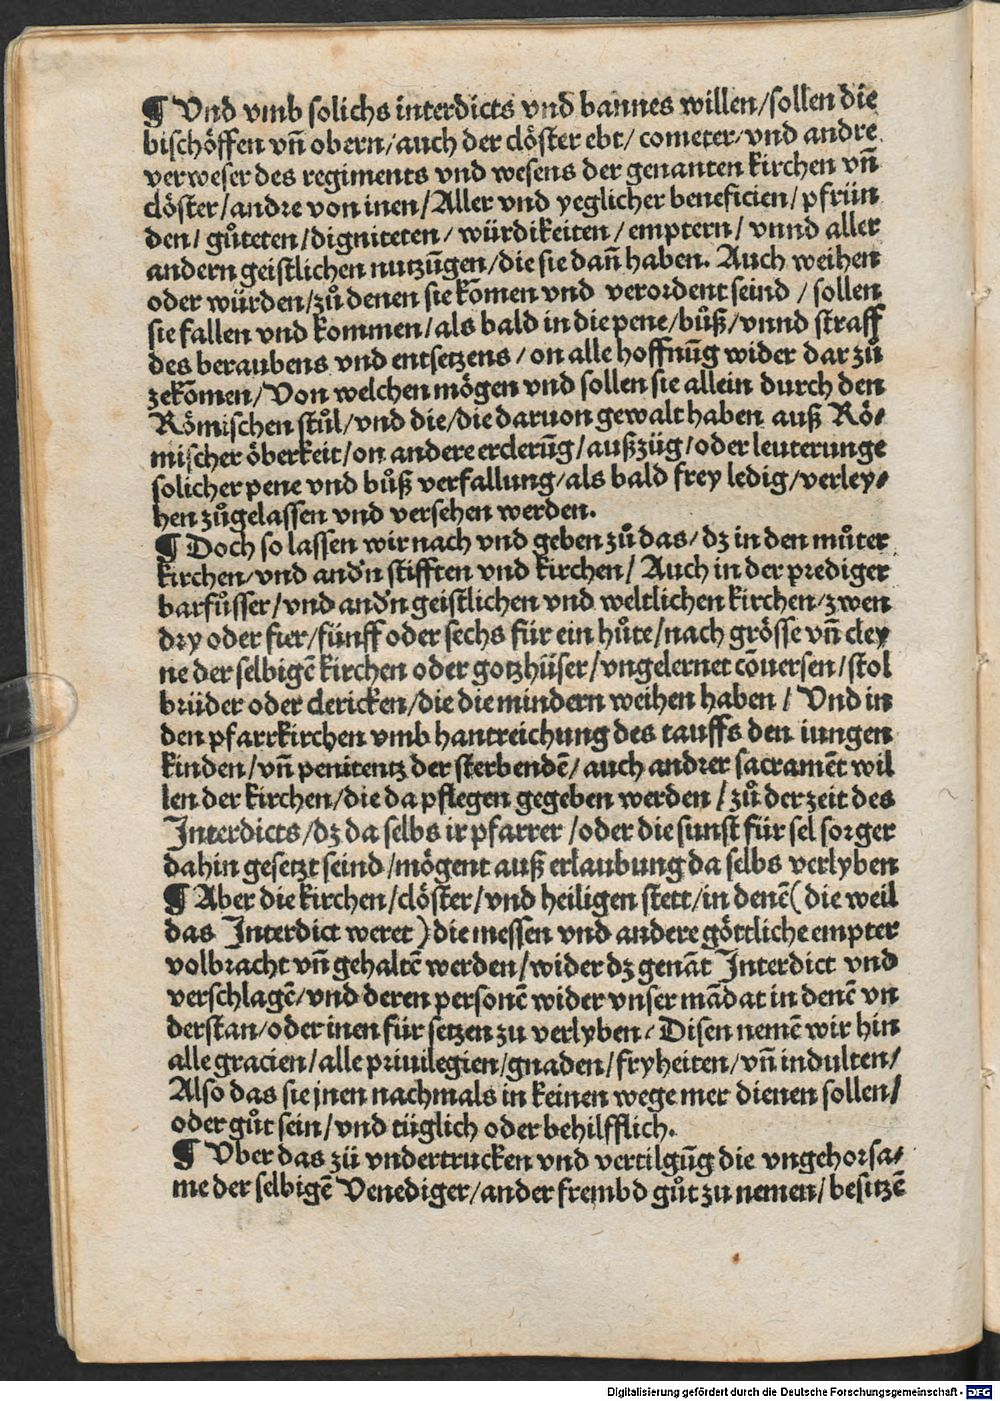 ¶ Vnd vmb solichs interdicts vnd bannes willen/sollen die
bischöffen vñ obern/auch der clöster ebt/ cometer/vnd andre
verweser des regiments vnd wesens der genanten kirchen vñ
clöster/andre von inen/Aller vnd yeglicher beneficien/pfrün
den/ gůteten/digniteten/ würdikeiten/emptern/ vnnd aller
andern geistlichen nutzũgen/die sie dañ haben. Auch weihen
oder würden/zů denen sie kõmen vnd verordent seind / sollen
sie fallen vnd kommen/als bald in die pene/bůß/vnnd straff
des beraubens vnd entsetzens/on alle hoffnũg wider dar zů
zekõmen/Von welchen mögen vnd sollen sie allein durch den
Römischen stůl/vnd die/die daruon gewalt haben auß Rö-
mischer öberkeit/on andere erclerũg/außzüg/oder leuterunge
solicher pene vnd bůß verfallung/als bald frey ledig/verley-
hen zůgelassen vnd versehen werden.
¶ Doch so lassen wir nach vnd geben zů das/dz in den můter
kirchen/vnd and'n stifften vnd kirchen/ Auch in der prediger
barfůsser/vnd and'n geistlichen vnd weltlichen kirchen/zwen
dry oder fier/fünff oder sechs für ein hůte/nach grösse vñ cley
ne der selbigẽ kirchen oder gotzhüser/vngelernet cõuersen/stol
brüder oder clericken/die die mindern weihen haben/ Vnd in
den pfarrkirchen vmb hantreichung des tauffs den iungen
kinden/vñ penitentz der sterbendẽ/auch andrer sacramẽt wil
len der kirchen/die da pflegen gegeben werden/zů der zeit des
Interdicts/dz da selbs ir pfarrer/oder die sunst für sel sorger
dahin gesetzt seind/mögent auß erlaubung da selbs verlyben
¶ Aber die kirchen/clöster/vnd heiligen stett/in denẽ(die weil
das Interdict weret)die messen vnd andere göttliche empter
volbracht vñ gehaltẽ werden/wider dz genãt Interdict vnd
verschlagẽ/vnd deren personẽ wider vnser mãdat in denẽ vn
derstan/oder inen für setzen zu verlyben/ Disen nemẽ wir hin
alle gracien/alle priuilegien/gnaden/fryheiten/vñ indulten/
Also das sie jnen nachmals in keinen wege mer dienen sollen/
oder gůt sein/vnd tüglich oder behilfflich.
¶ Vber das zů vndertrucken vnd vertilgũg die vngehorsa-
me der selbigẽ Venediger/ander frembd gůt zu nemen/besitzẽ
Digitalisierung gefördert durch die Deutsche Forschungsgemeinschaft - DFG